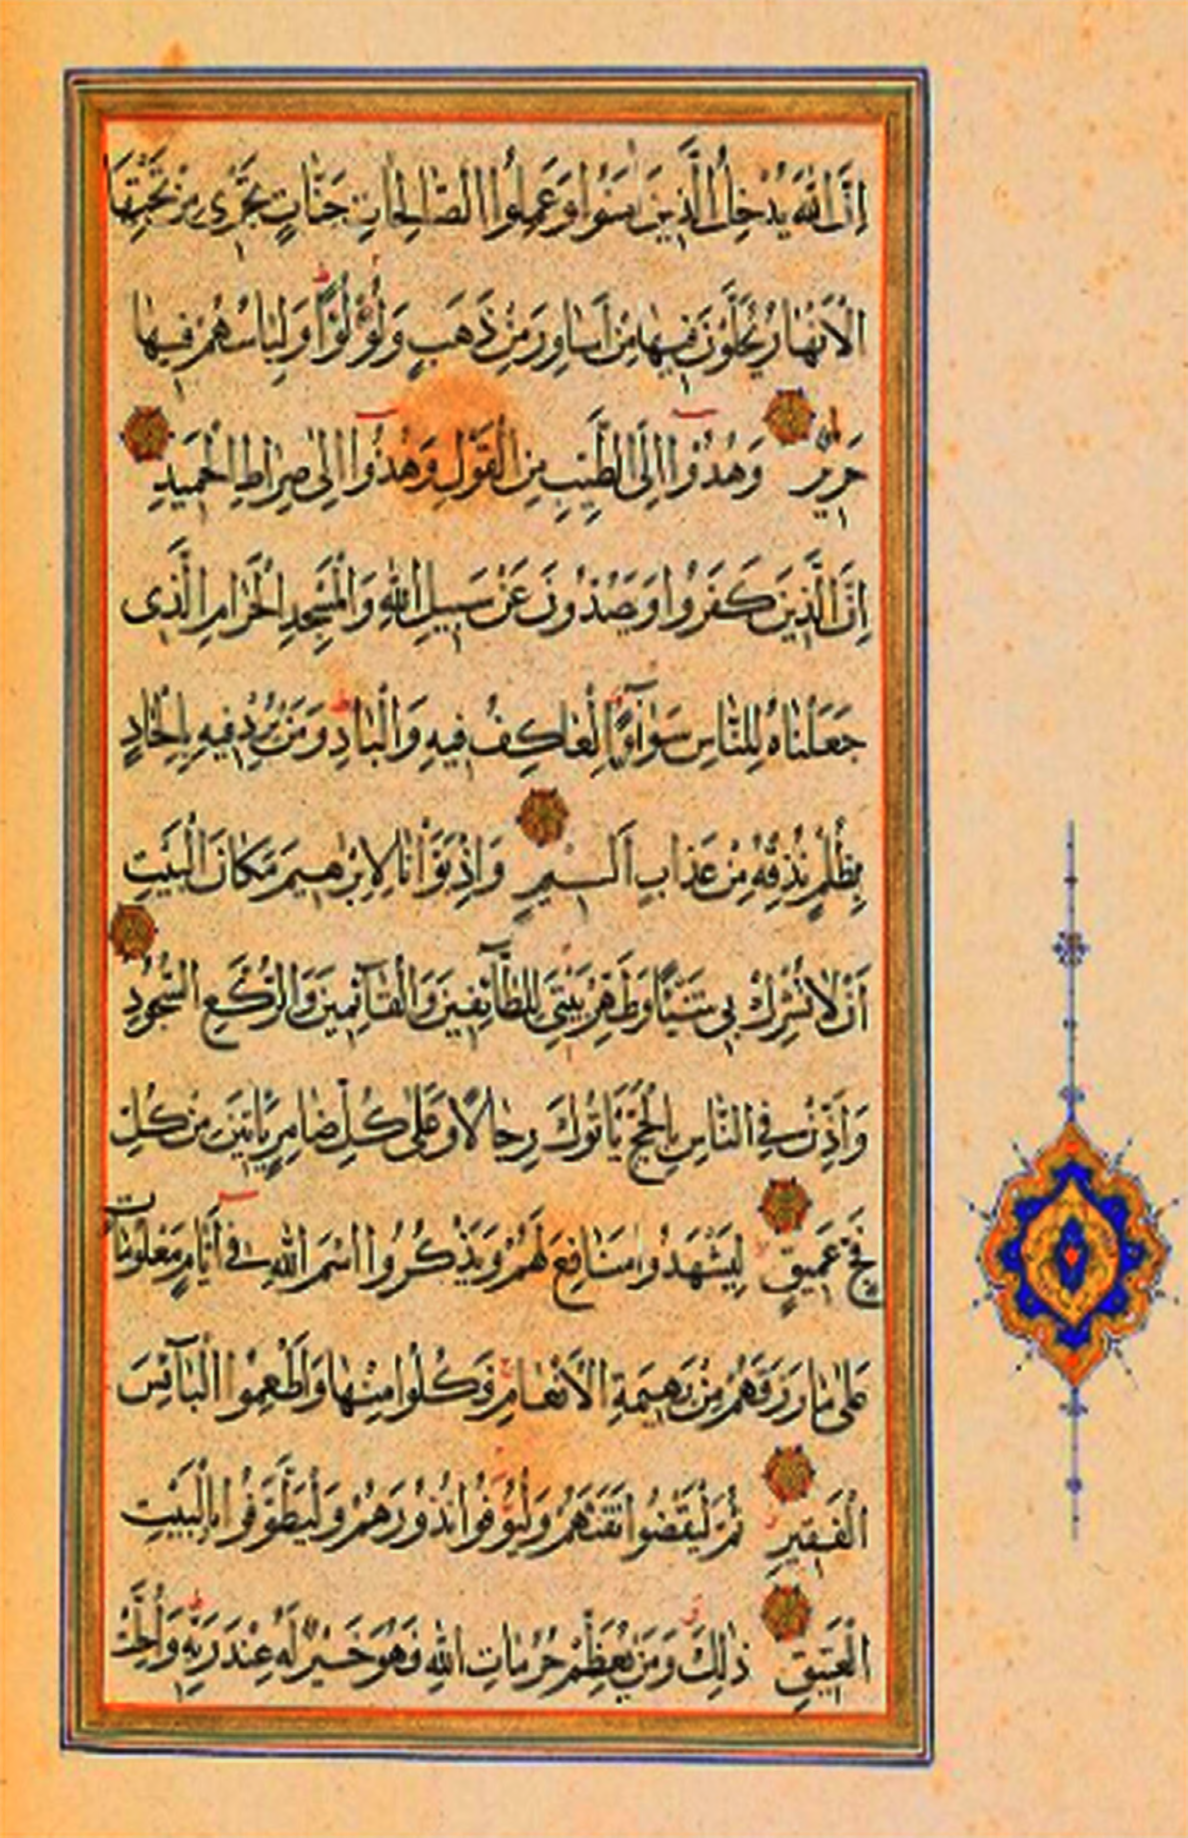 اِنَّ اللّٰهَ يُدْخِلُ الَّذينَ اٰمَنُوا وَعَمِلُوا الصَّالِحَاتِ جَنَّاتٍ تَجْرى مِنْ تَحْتِهَا
الْاَنْهَارُ يُحَلَّوْنَ فيهَا مِنْ اَسَاوِرَ مِنْ ذَهَبٍ وَلُؤْلُؤًا وَلِبَاسُهُمْ فيهَا
حَريرٌ وَهُدُوا اِلَى الطَّيِّبِ مِنَ الْقَوْلِ وَهُدُوا اِلٰى صِرَاطِ الْحَميدِ
اِنَّ الَّذينَ كَفَرُوا وَيَصُدُّونَ عَنْ سَبيلِ اللّٰهِ وَالْمَسْجِدِ الْحَرَامِ الَّذى
جَعَلْنَاهُ لِلنَّاسِ سَوَآءً الْعَاكِفُ فيهِ وَالْبَادِ وَمَنْ يُرِدْ فيهِ بِاِلْحَادٍ
بِظُلْمٍ نُذِقْهُ مِنْ عَذَابٍ اَليمٍ وَاِذْ بَوَّأْنَا لِاِبْرٰهيمَ مَكَانَ الْبَيْتِ
اَنْ لَا تُشْرِكْ بى شَيْئًا وَطَهِّرْ بَيْتِىَ لِلطَّآئِفينَ وَالْقَآئِمينَ وَالرُّكَّعِ السُّجُودِ
وَاَذِّنْ فِى النَّاسِ بِالْحَجِّ يَأْتُوكَ رِجَالًا وَعَلٰى كُلِّ ضَامِرٍ يَأْتينَ مِنْ كُلِّ
فَجٍّ عَميقٍ لِيَشْهَدُوا مَنَافِعَ لَهُمْ وَيَذْكُرُوا اسْمَ اللّٰهِ فى اَيَّامٍ مَعْلُومَاتٍ
عَلٰى مَا رَزَقَهُمْ مِنْ بَهيمَةِ الْاَنْعَامِ فَكُلُوا مِنْهَا وَاَطْعِمُوا الْبَآئِسَ
الْفَقيرَ ثُمَّ لْيَقْضُوا تَفَثَهُمْ وَلْيُوفُوا نُذُورَهُمْ وَلْيَطَّوَّفُوا بِالْبَيْتِ
الْعَتيقِ ذٰلِكَ وَمَنْ يُعَظِّمْ حُرُمَاتِ اللّٰهِ فَهُوَ خَيْرٌ لَهُ عِنْدَ رَبِّهِ وَاُحِلَّتْ